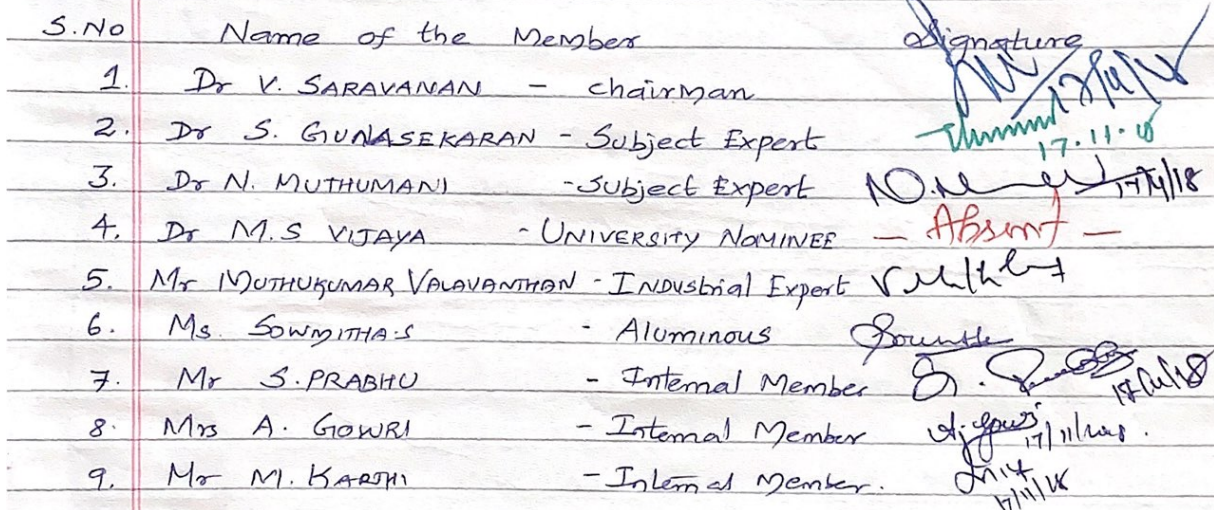 S.No Name of the Member Signature
1. Dr V. SARAVANAN - chairman
2. Dr S. GUNASEKARAN - Subject Expert 17.11.18
3. Dr N. MUTHUMANI - Subject Expert 17/11/18
4. Dr M.S VIJAYA - UNIVERSITY NOMINEE - Absent -
5. Mr MUTHUKUMAR VALAVANTHAN - INDUstrial Expert
6. Ms. SOWMITHA.S - Aluminous
7. Mr S.PRABHU - Internal Member
8. Mrs A. GOWRI - Internal Member
9. Mr M. KARTHI - Internal Member.